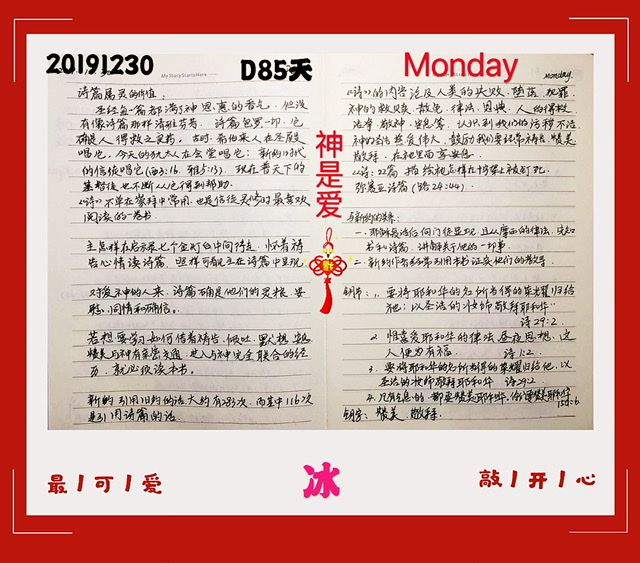 20191230
D85天
Monday
My Story Starts Here
monday.
诗篇属灵的价值：
圣经每一篇都满了神恩惠的香气，但没
有像诗篇那样清甜芬芳。诗篇包罗一切，也
确是人得救之良药，古时希伯来人在圣殿
唱它，今天的犹太人在会堂唱它；新约时代
的信徒唱它(西3:16. 雅5:13). 现在普天下的
基督徒也不断从它得到帮助.
《诗》不单在崇拜中常用，也是信徒灵修时最喜欢
阅读的一卷书
主怎样在启示录七个金灯的中间行走，怀着祷
告心情读诗篇，照样可看见主在诗篇中显现.
对爱神的人来，诗篇确是他们的灵粮、安
慰、同情和确信。
若想要学习如何传者祷告、佩吐、默想、
赞美与神有亲密交通，进入与神完全联合的经
历，就必须读本书。
新约引用旧约的话大约有283次，而其中116次
是引用诗篇的话.
神是爱
《诗》的内容论及人类的失败、堕落、犯罪
神的救赎、赦免、律法、恩典、人的得救
法、敬神、安息等，认识到我们的污秽不洁
神的圣洁慈爱伟大，鼓励我们要经常祷告、赞美
敬拜，在祂里面享安息.
《诗》22篇 描绘祂怎样在十字架上被钉死.
弥赛亚诗篇(路24:44).
与新约的关系：
一、耶稣复活后向门徒显现，且从摩西的律法，先知
书和诗篇，讲解关于他的一切事.
二、新约作者经常引用本书证实他们的教导.
钥节：1. 要将耶和华的名所当得的荣耀归给
他；以圣洁的妆饰敬拜耶和华
诗29:2.
2. 惟喜爱耶和华的律法昼夜思想，这
人便为有福. 诗1:2.
3. 要将耶和华的名所当得的荣耀归给他，以
圣洁的妆饰敬拜耶和华 诗29:2
4. 凡有气息的都要赞美耶和华，你们要赞美耶和华
150:6
钥字：赞美、敬拜.
最|可|爱
冰
敲|开|心